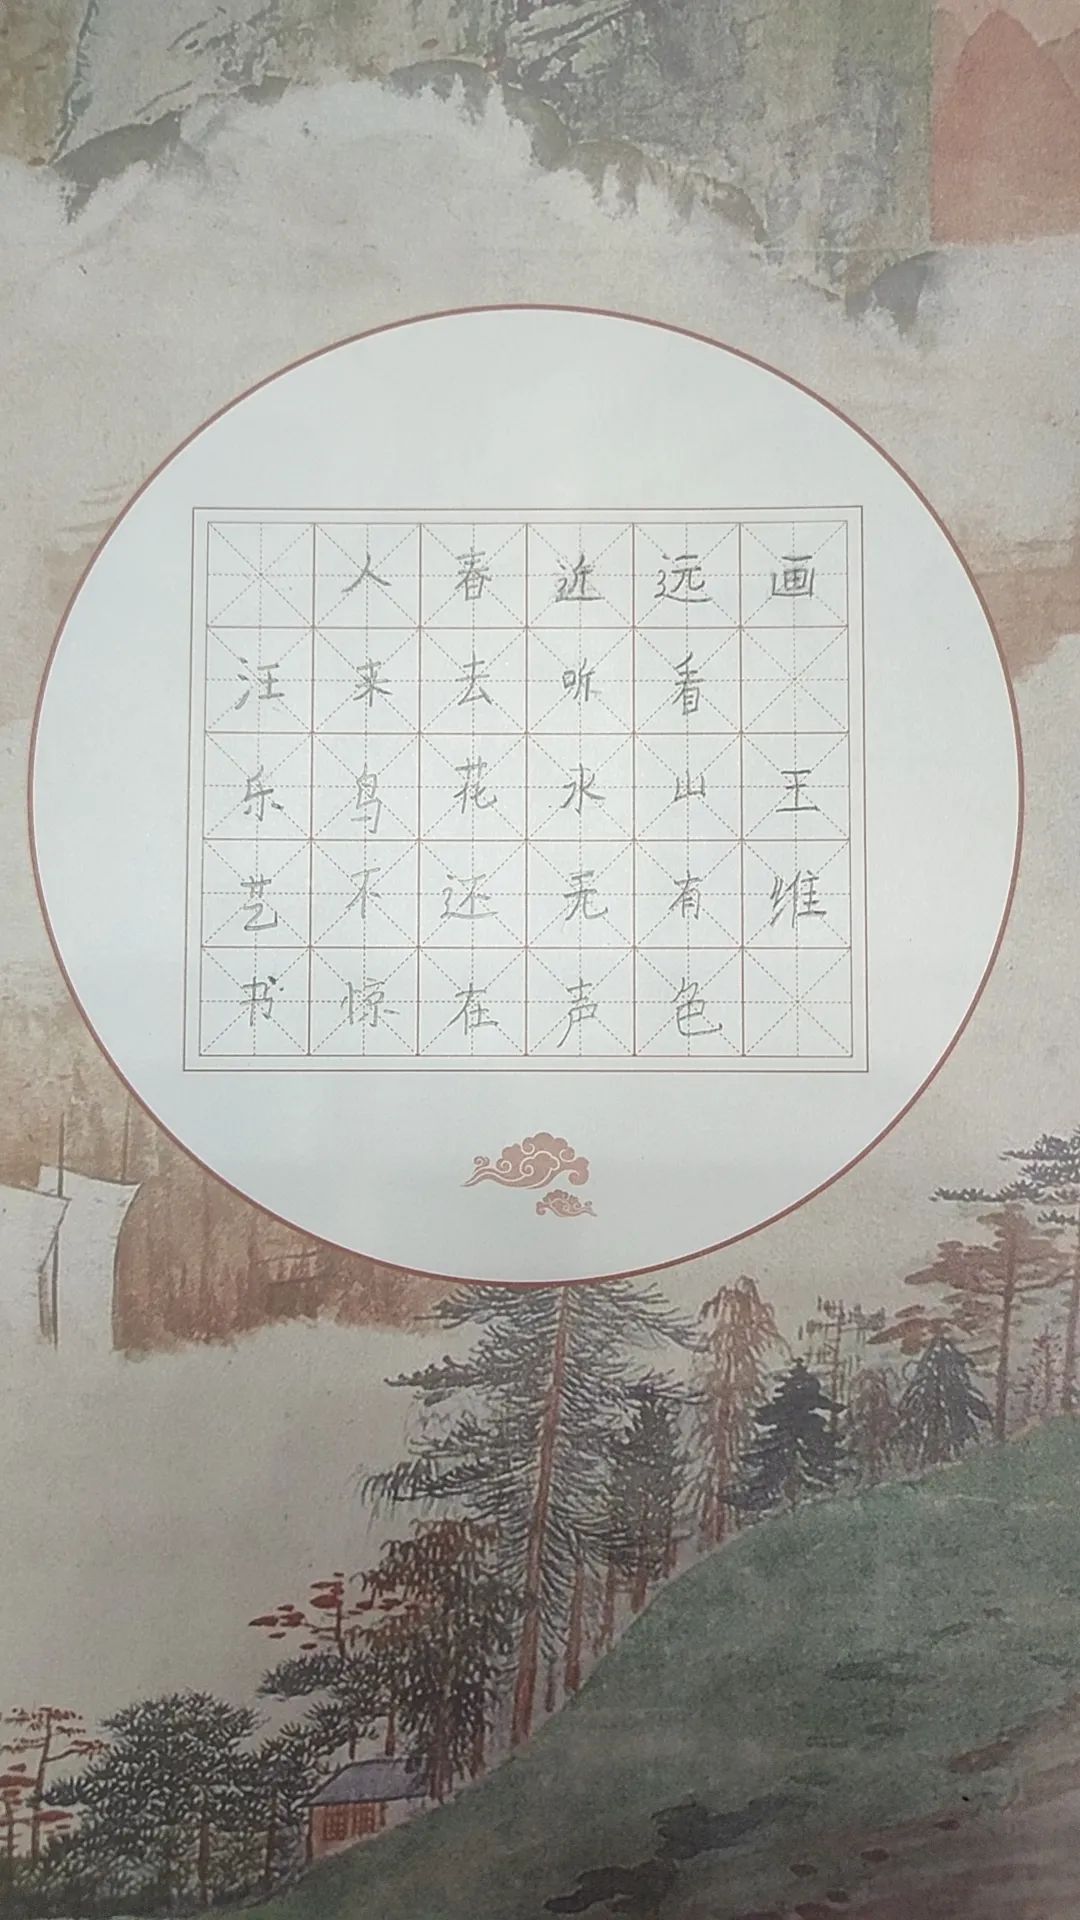 画 王维
远看山有色
近听水无声
春去花还在
人来鸟不惊
汪乐艺书